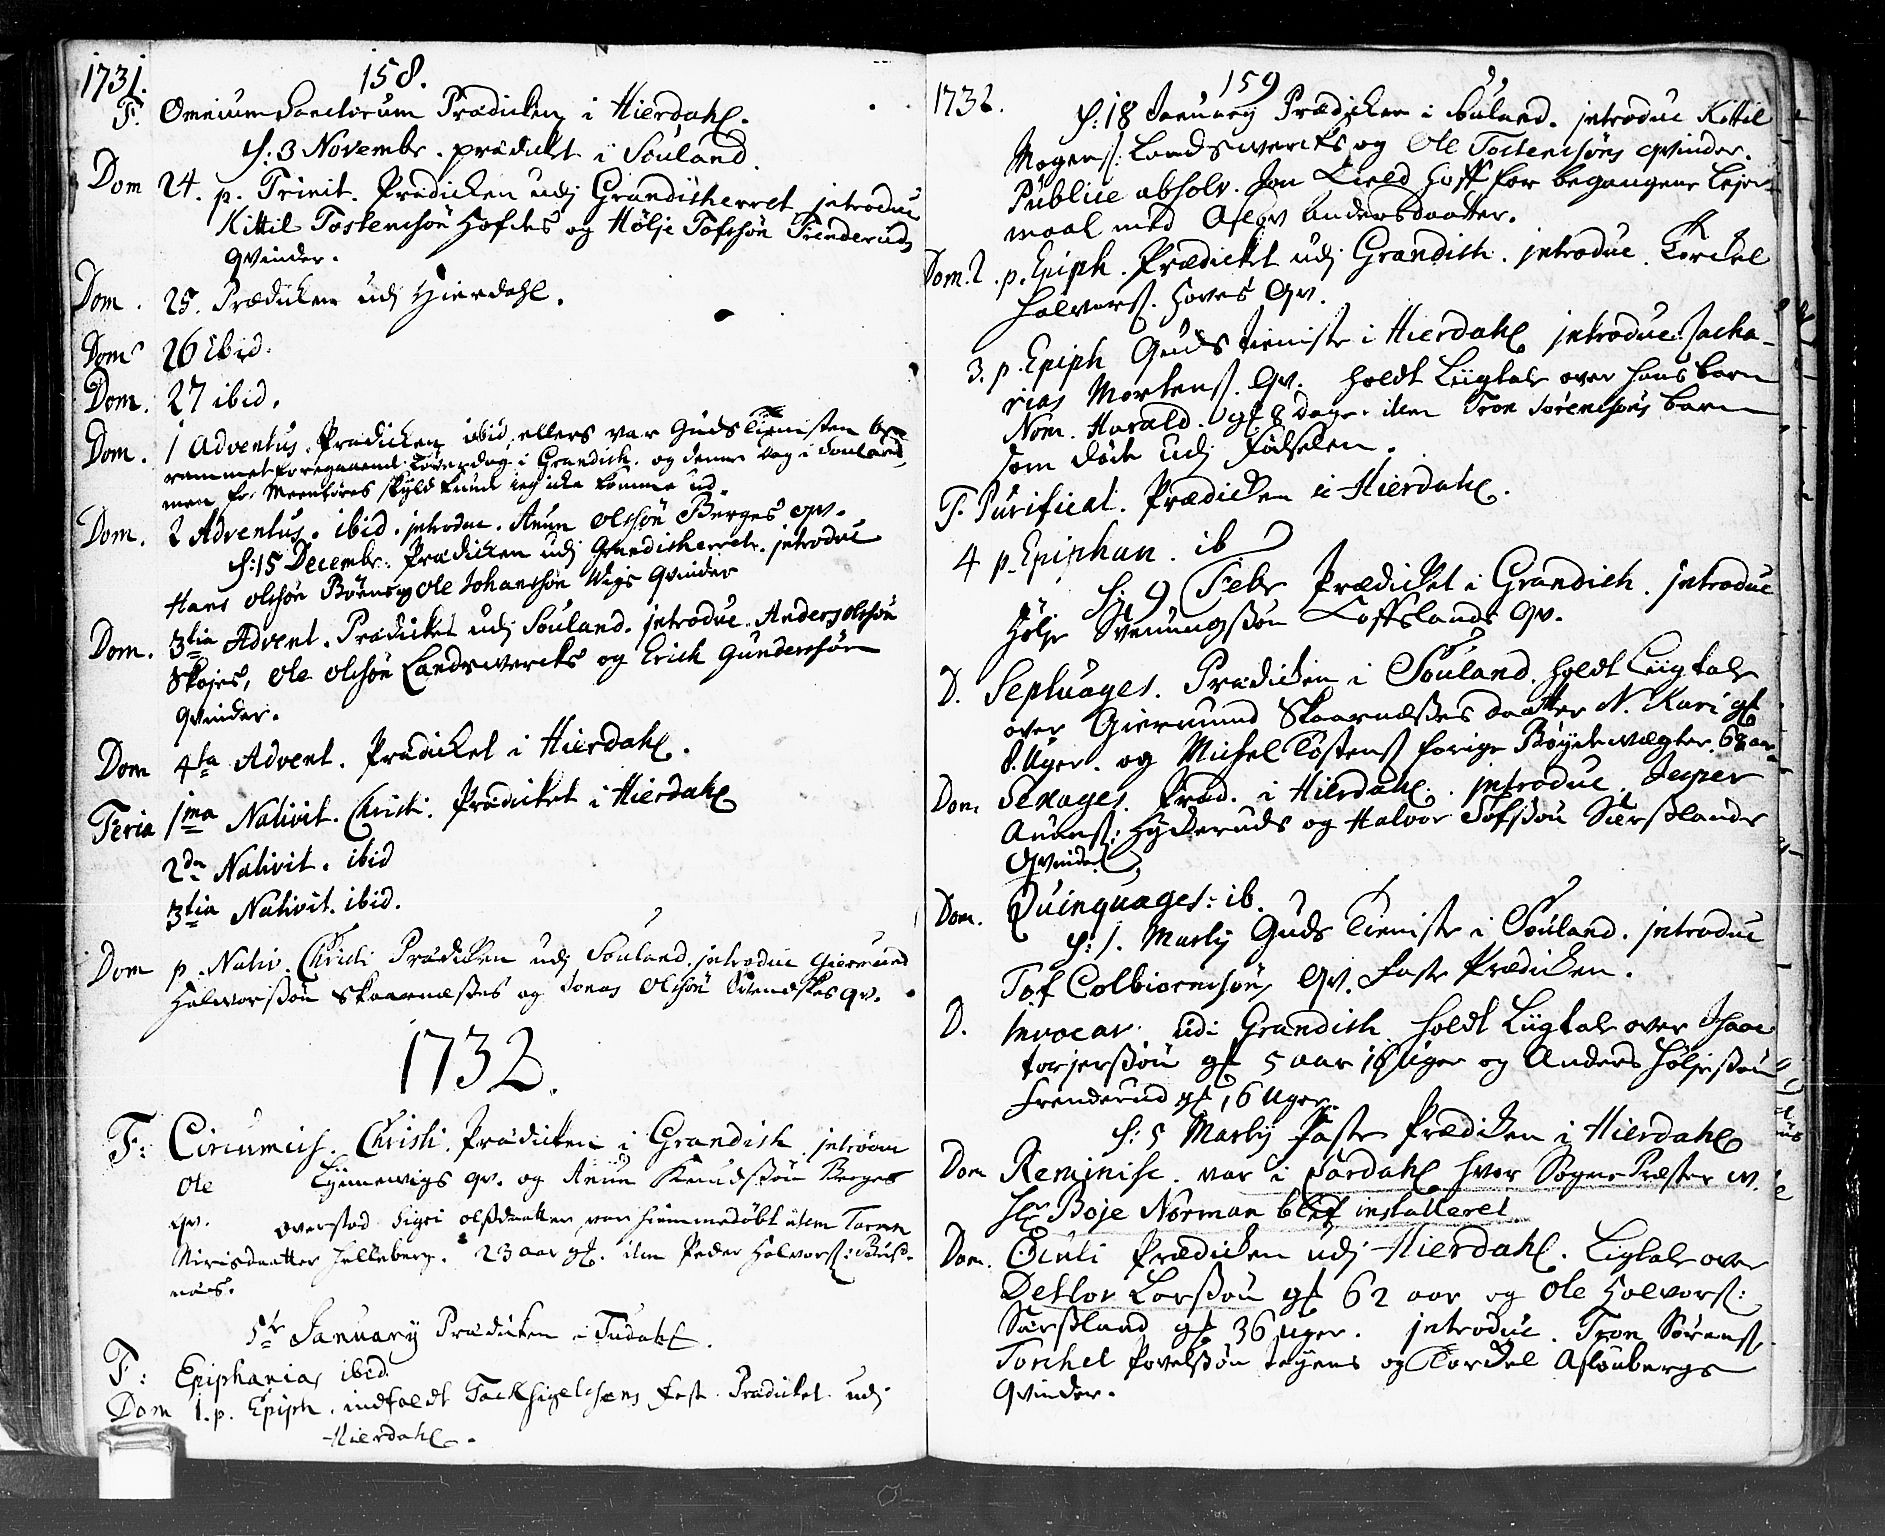 1731.
158.
F. Omnium Sanctorum Prædicken i Hierdahl.
d: 3 Novembr. prædicket i Souland.
Dom 24. p. Trinit. Prædicken udj Grandisherret introduc
Kittil Tostensøn Hofdes og Hølje Tofsøn Frenderuds
qvinder.
Dom. 25. Prædicken udj Hierdahl.
Dom 26 Ibid.
Dom. 27 ibid.
Dom. 1 Adventus. Prædicken ibid, ellers var Guds Tienisten be-
rammet foregaaende Løverdag i Grandish. og denne dag i Souland,
men for Meenføres skyld kunde ieg icke komme ud.
Dom. 2 Adventus. ibid. introduc. Aun Olsøn Berges qv.
d: 15 Decembr. Prædicken udj Grandisherret. introduc
Hans Olsøn Bøens og Ole Johansøn Wigs Qvinder
Dom. 3tia Advent. Prædicket udj Souland. introduc. Anders Olsøn
Skojes, Ole Olsøn Landsvercks og Erich Gundersøns
qvinder.
Dom 4ta Advent. Prædicket i Hierdahl.
Feria 1ma Nativit. Christi. Prædicket i Hierdahl
2da Nativit. ibid
3tia Nativit. ibid.
Dom p. Nativ. Christi Prædicken udj Souland. introduc Giermund
Halvorssøn Skaarnæsses og Jonas Olsøn qv.
1732.
F: Circumcis. Christi. Prædicken i Grandish. introduc
Ole qv. og Aun Knudssøn Berges
qv. overstod Sigri Olsdaatter var hiemmedøbt item
23 aar gl. item Peder Halvors:
5te January Prædicken i Tudahl.
F: Epiphanias ibid.
Dom 1. p. Epiph. indfaldt Tacksigelsens fest. Prædicket udj
Hierdahl.
1732.
159
d: 18 January Prædicken i Souland. introduc Kittil
Mogens: Landsvercks og Ole Tostensøns qvinder.
Publice absolv. Jon Kield Hoff for begangene Lejer-
maal med Aslov Andersdaatter.
Dom. 2. p. Epiph. Prædicket udj Grandish. introduc. Torckel
Halvors. Hoves Qv.
3. p. Epiph Guds tieniste i Hierdahl introduc: Zacha-
rias Mortens. Qv. holdt Liigtale over hans barn
Nom. Harald. gl. 8 dage. item Tron Sørensøns barn
som døde udj Fødselen.
F. Purificat. Prædicken i Hierdahl.
4 p. Epiphan. ib.
d: 9 Febr Prædicket i Grandish. introduc
Hølje Svenungssøn Loftslands Qv.
D. Septuages. Prædicken i Souland. holdt Liigtale
over Giermund Skaarnæsses daatter N. Kari gl.
8. Uger. og Michel Tostens forige Bøydevægter 68 aar.
Dom. Sexages. Præd. i Hierdahl. introduc. Jesper
Auens: Hyckeruds og Halvor Tofssøn Særsslands
Qvinder.
Dom. Quinquages: ib.
d: 1. Marty Guds tieniste i Souland. introduc
Tof Colbiørnsøns Qv. Faste Prædicken.
D. Invocav. udi Grandish holdt Liigtale over Isaac
Torjerssøn gl. 5 aar 16 Uger og Anders Høljessøn
Frenderud gl. 16 Uger.
d: 5 Marty Faste Prædicken i Hierdahl
Dom Reminisc. var i Sørdahl hvor Sogne Præsten v.
Hr Boje Norman blef installeret.
Dom. Oculi Prædicken udj Hierdahl. Ligtale over
Detlov Larssøn gl. 62 aar og Ole Halvors:
Særssland gl. 36 Uger. introduc. Tron Sørens.
Torchel Povelssøn og Torckel Asløubergs
Qvinder.